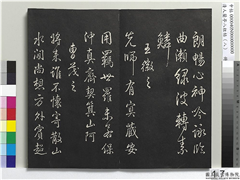 朗暢心神吟詠
曲瀨綠波轉素
鱗
王徽之
先師有冥藏安
用羈世羅未若保
沖真齊契箕山阿
曹茂之
時來誰不懷寄散山
林間尚想方外賓迢